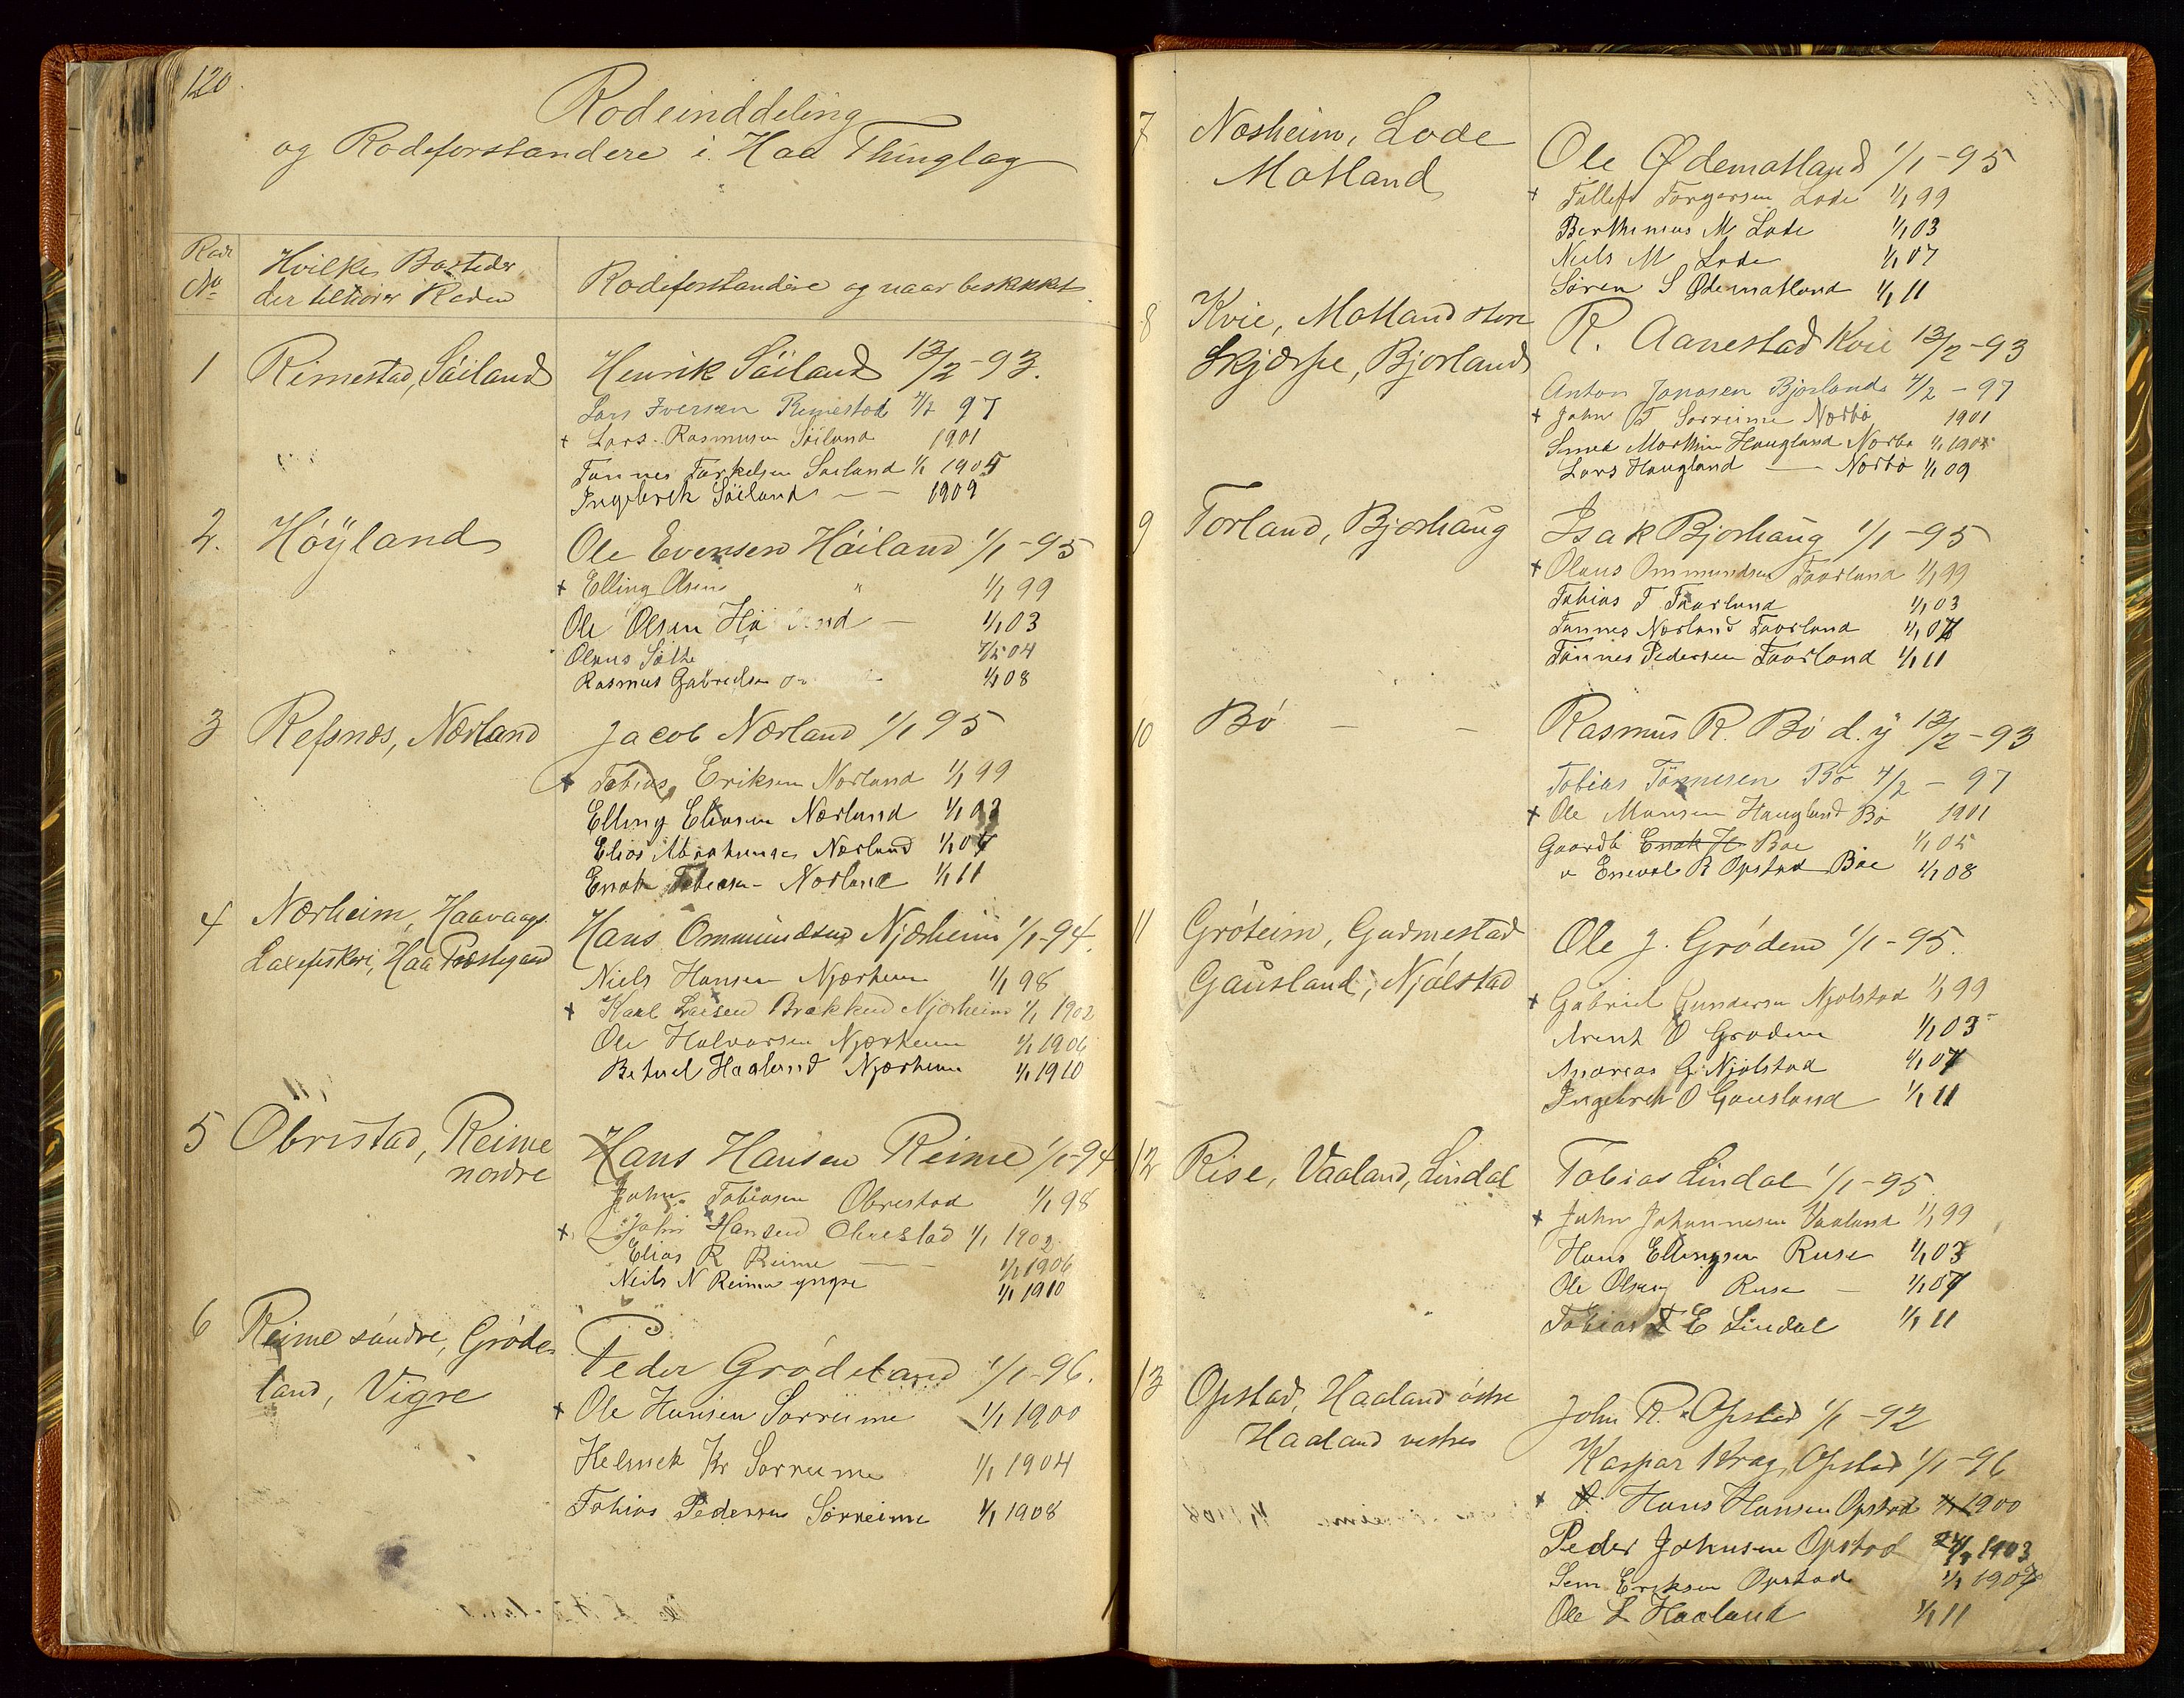 120.
Rodeinddeling
og Rodeforstandere i Haa Thinglag
Rode No
Hvilke Bosteder
der tilhører Roden
Rodeforstandere og naar beskikket.
1
Rimestad, Söiland
Henrik Söiland 13/2-93.
Lars Iversen Rimestad 4/2 97
+ Lars Rasmusen Söiland 1901
Tønnes Torkelsen Soiland 1/1 1905
Ingebret Söiland - - 1909
2.
Höÿland
Ole Evensen Höiland 1/1-95
+ Elling Olsen " 1/1 99
Ole Olsen Hö land - 1/1 03
Olaus Salte 04
Rasmus Gabrielsen 1/1 08
3
Refsnæs, Nærland
Jacob Nærland 1/1 95
+ Tobias Eriksen Nærland 1/1 99
Elling Eliasen Nærland 1/1 03
Elias Abrahamsen Nærland 1/1 07
Enok Tobiasen Nærland 1/1 11
4
Nærheim, Haavaags
Laxefiskeri, Haa Præstegaard
Hans Ommundsen Njærheim 1/1-94.
Niels Hansen Njærheim 1/1 98
+ Karl Larsen Brækken Njærheim 1/1 1902
Ole Halvorsen Njærheim 1/1 1906
Betuel Haaland Njærheim 1/1 1910
5
Obrestad, Reime
nordre
Hans Hansen Reime 1/1-94
John Tobiasen Obrestad 1/1 98
+ John Hansen Obrestad 1/1 1902
Elias R Reime - - 1/1 1906
Niels N Reime yngre 1/1 1910
6
Reime söndre, Gröde-
land, Vigre
Peder Grödeland 1/1-96.
+ Ole Hansen Sörreime 1/1 1900
Helmek Kr Sörreime 1/1 1904
Tobias Pedersen Sörreime 1/1 1908
7
Næsheim, Lode
Motland
Ole Ødemotland 1/1-95
+ Tollef Torgersen Lode 1/1 99
Berthinius M Lode 1/1 03
Niels M Lode 1/1 07
Sören S Ødemotland 1/1 11
8
Kvie, Motland store
Skjærpe, Bjorland
R. Aanestad Kvie 13/2-93
Anton Jonasen Bjorland 4/2 - 97
+ John T Sörreime Nærbö 1901
Smed Marthin Haugland Nærbö 1/1 1905
Lars Haugland - Nærbö 1/1 09
9
Torland, Bjorhaug
Isak Bjorhaug 1/1-95
+ Olaus Ommundsen Taarland 1/1 99
Tobias T Taarland 1/1 03
Tønnes Nærland Taarland 1/1 07
Tønnes Pedersen Taarland 1/1 11
10
Bö - -
Rasmus R. Bö d.y. 13/2-93
Tobias Tönnesen Bö 4/2 - 97
+ Ole Monsen Haugland Bö 1901
Gaardb Enok H Bøe 1/1 05
" Enevald R Opstad Bøe 1/1 08
11
Gröteim, Gudmestad
Gausland, Njölstad
Ole J. Gröden 1/1-95.
+ Gabriel Gundersen Njolstad 1/1 99
Arent O Groden 1/1 03
Andreas G Njolstad 1/1 07
Ingebret O Gausland 1/1 11
12
Rise, Vaaland, Lindal
Tobias Lindal 1/1-95
+ John Johannesen Vaaland 1/1 99
Hans Ellingsen Ruse 1/1 03
Ole Olsen Ruse - 1/1 07
Tobias T E Lindal 1/1 11
13
Opstad, Haaland östre
Haaland vestre
John R. Opstad 1/1-92
Kaspar Krag Opstad 1/1-96
+ Hans Hansen Opstad 1/1 1900
Peder Johnsen Opstad 1903
Sem Eriksen Opstad 1/1 1907
Ole L Haaland 1/1 11